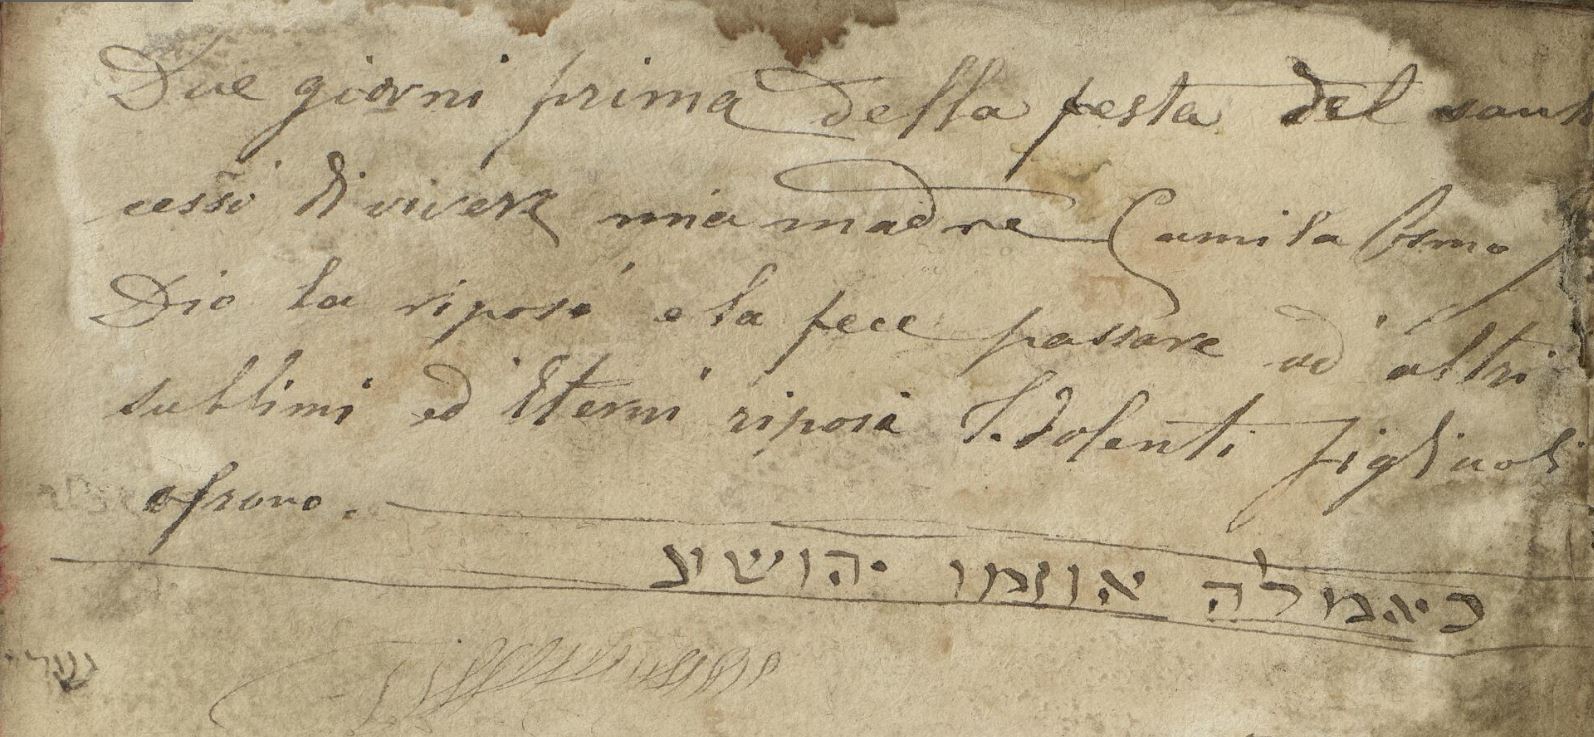 Due giorni prima della festa del sant
cessò di vivere mia madre Camila Osmo
Dio la riposé e la fece passare ad altri
sublimi ed Eterni riposi I. dolenti figliuoli
ofrono.
כיאמלה אוזמו יהושע